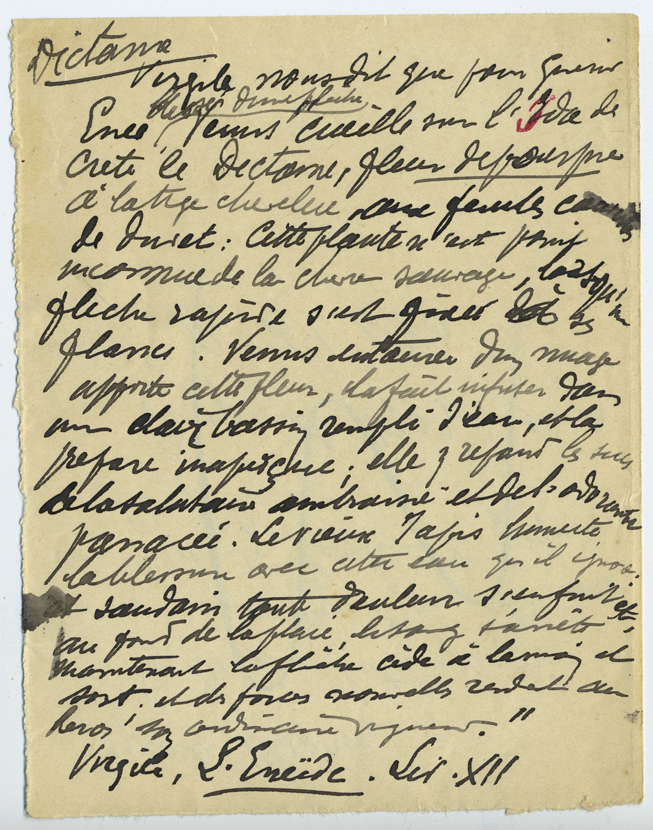 Dictame
Virgile nous dit que pour guérir
blessé d'une flèche
Enée Venus cueille sur l'Ida de
Crète le Dictame, fleur de pourpre
à la tige chevelue, aux feuilles
de duvet : Cette plante n'est point
inconnue de la chèvre sauvage, lorsqu'une
flèche rapide s'est fixée à ses
flancs. Venus entourée d'un nuage
apporte cette fleur, la fait infuser dans
un clair bassin rempli d'eau, et la
prépare ; elle y répand les sucs
de la salutaire ambroisie et de l'odorante
panacée. Le vieux Japis humecte
la blessure avec cette eau qu'il ignore.
et soudain toute douleur s'enfuit et,
au fond de la plaie, le sang s'arrête
maintenant la flèche cède à la main et
sort. et des forces nouvelles rendent au
héros son ordinaire vigueur."
Virgile, L'Enéïde. Liv. XII